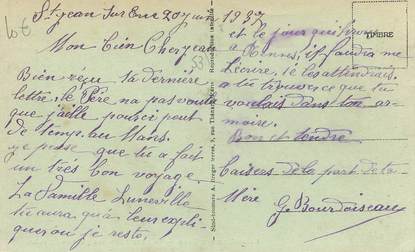 10 €
St Jean sur Erve 20 juin 1937
Mon bien Cher Jean
Bien reçu ta dernière
lettre, le Père na pas voulu
que j'aille pour si peut
de temp. au Mans.
je pense que tu a fait
un très bon voyage.
La Famille Luneville
tu aura qu'à leur expli-
quer ou je reste.
et le jour qu'il iront
a Rennes, il faudra me
l'écrire, je les attendrais.
a tu trouver ce que tu
voulais dans ton ar-
moire.
Bon et tendre
baisers de la part de ta
Mère
G. Bourdoiseau
TIMBRE
Reproduction interdite
53